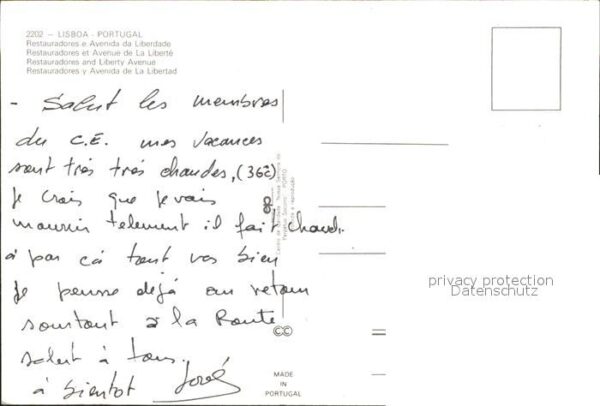 2202 – LISBOA - PORTUGAL
Restauradores e Avenida da Liberdade
Restauradores et Avenue de La Liberté
Restauradores and Liberty Avenue
Restauradores y Avenida de La Libertad
- Salut les membres
du C.E. mes vacances
sont très très chaudes, (36º)
Je crois que je vais
mourrir telement il fait chaud..
à par ça tout vas bien
Je pensse déjà au retour
sourtout à la Route
salut à tous..
à bientot José
MADE
IN
PORTUGAL
privacy protection
Datenschutz